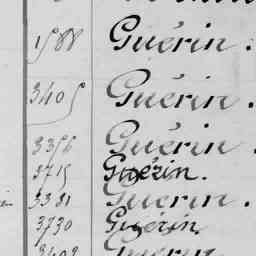 1588 Guérin.
3405 Guérin.
3356 Guérin.
3715 Guérin.
3381 Guérin.
3730 Guérin.
3402 Guérin